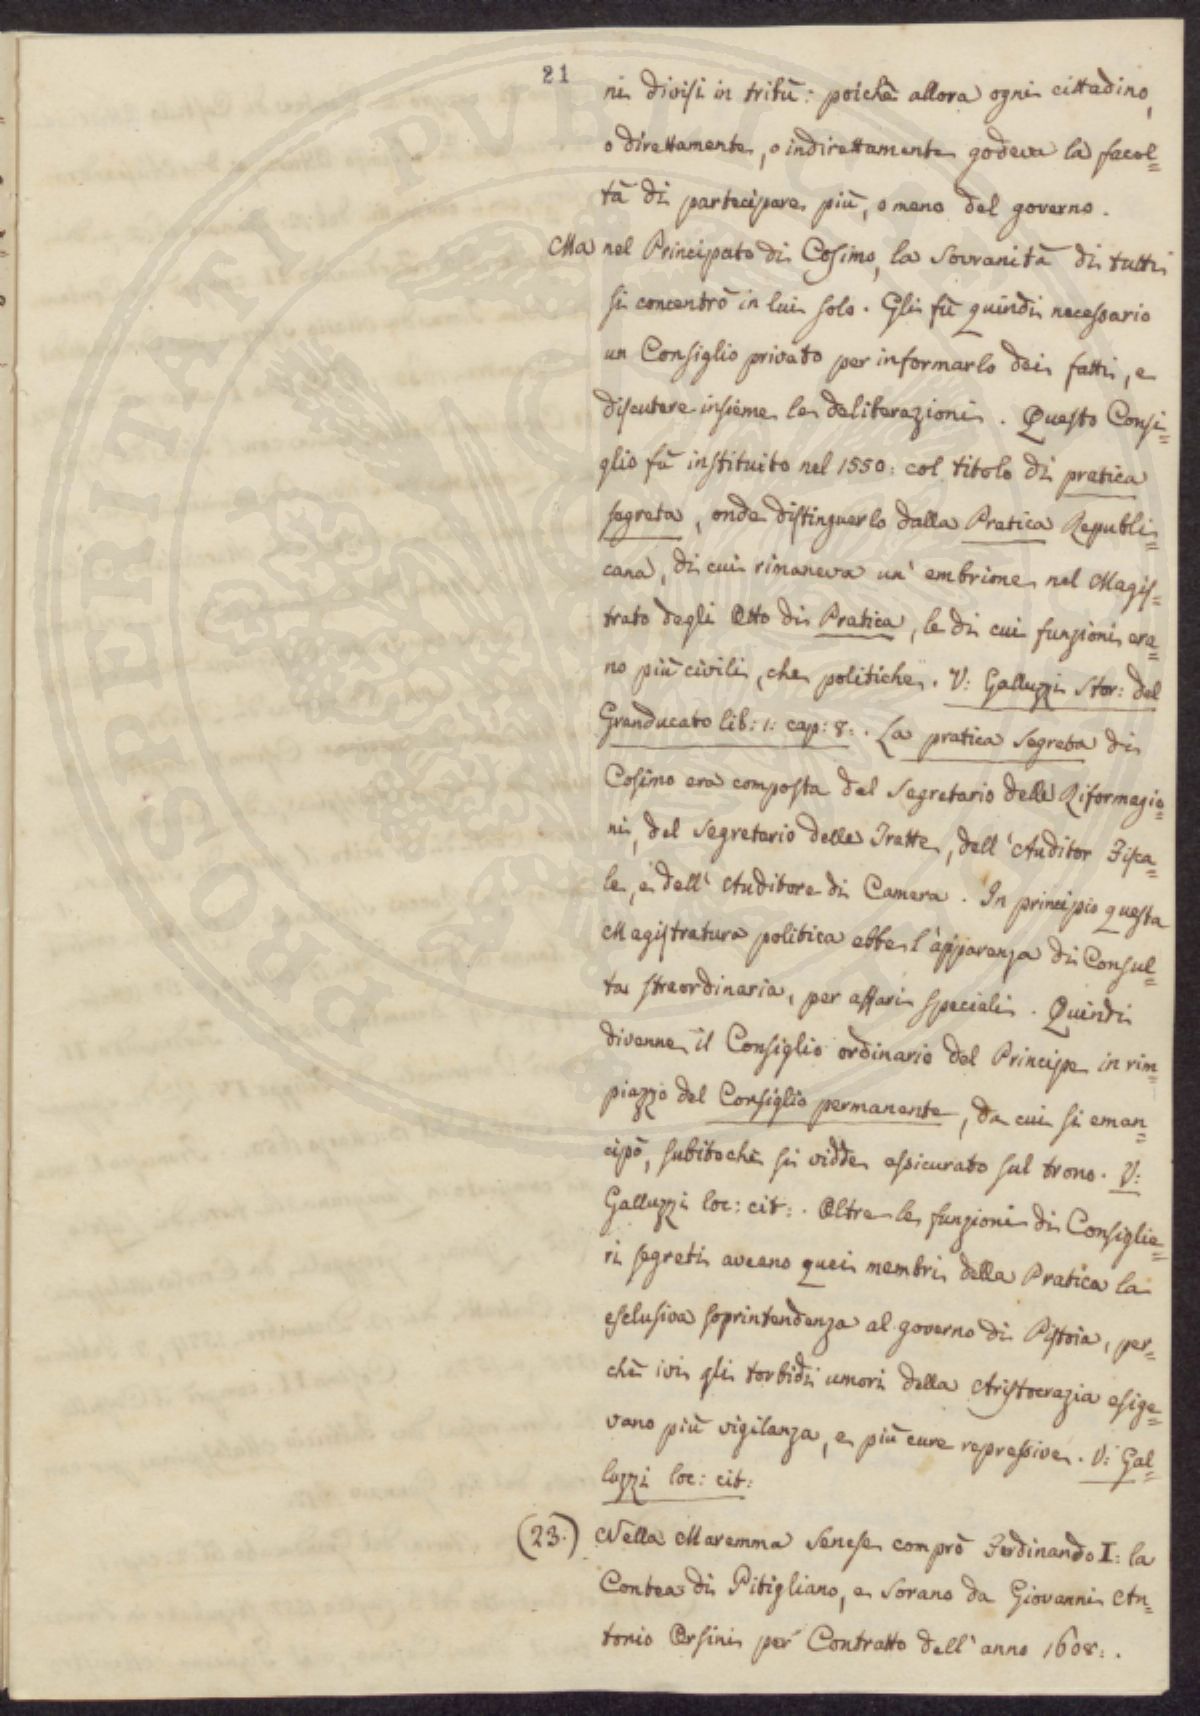 21
ni divisi in tribù: poichè allora ogni cittadino,
o direttamente, o indirettamente godeva la facol=
tà di partecipare più, o meno del governo.
Ma nel Principato di Cosimo, la Sovranità di tutti
si concentrò in lui solo. Gli fù quindi necessario
un Consiglio privato per informarlo dei fatti, e
discutere insieme le deliberazioni. Questo Consi=
glio fù instituito nel 1550: col titolo di pratica
segreta, onde distinguerlo dalla Pratica Republi=
cana, di cui rimaneva un' embrione nel Magis=
trato degli Otto di Pratica, le di cui funzioni era=
no più civili, che politiche. V: Galluzzi Stor: del
Granducato lib: 1: cap: 8:. La pratica Segreta di
Cosimo era composta del Segretario delle Riformagio=
ni, del Segretario delle Tratte, dell' Auditor Fisca=
le, e dell' Auditore di Camera. In principio questa
Magistratura politica ebbe l'apparenza di Consul=
ta straordinaria, per affari speciali. Quindi
divenne il Consiglio ordinario del Principe in rim=
piazzo del Consiglio permanente, da cui si eman=
cipò, subitochè si vidde assicurato sul trono. V:
Galluzzi loc: cit:. Oltre le funzioni di Consiglie=
ri segreti aveano quei membri della Pratica la
esclusiva soprintendenza al governo di Pistoia, per=
chè ivi gli torbidi umori della Aristocrazia esige=
vano più vigilanza, e più cure repressive. V: Gal=
luzzi loc: cit:
(23.) Nella Maremma Senese comprò Ferdinando I: la
Contea di Pitigliano, e Sorano da Giovanni An=
tonio Orsini per Contratto dell' anno 1608:.
PROSPERITATI PVBLICAE